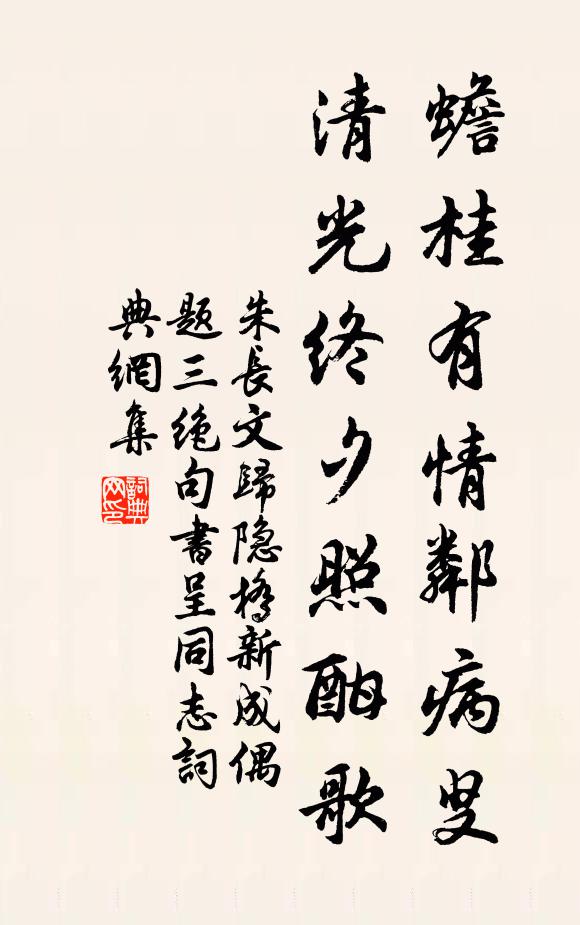 蟾桂有情鄰病叟
清光終夕照酣歌
朱長文歸隐橋新成偶
題三绝句書呈同志詞
典網集
詞典网印